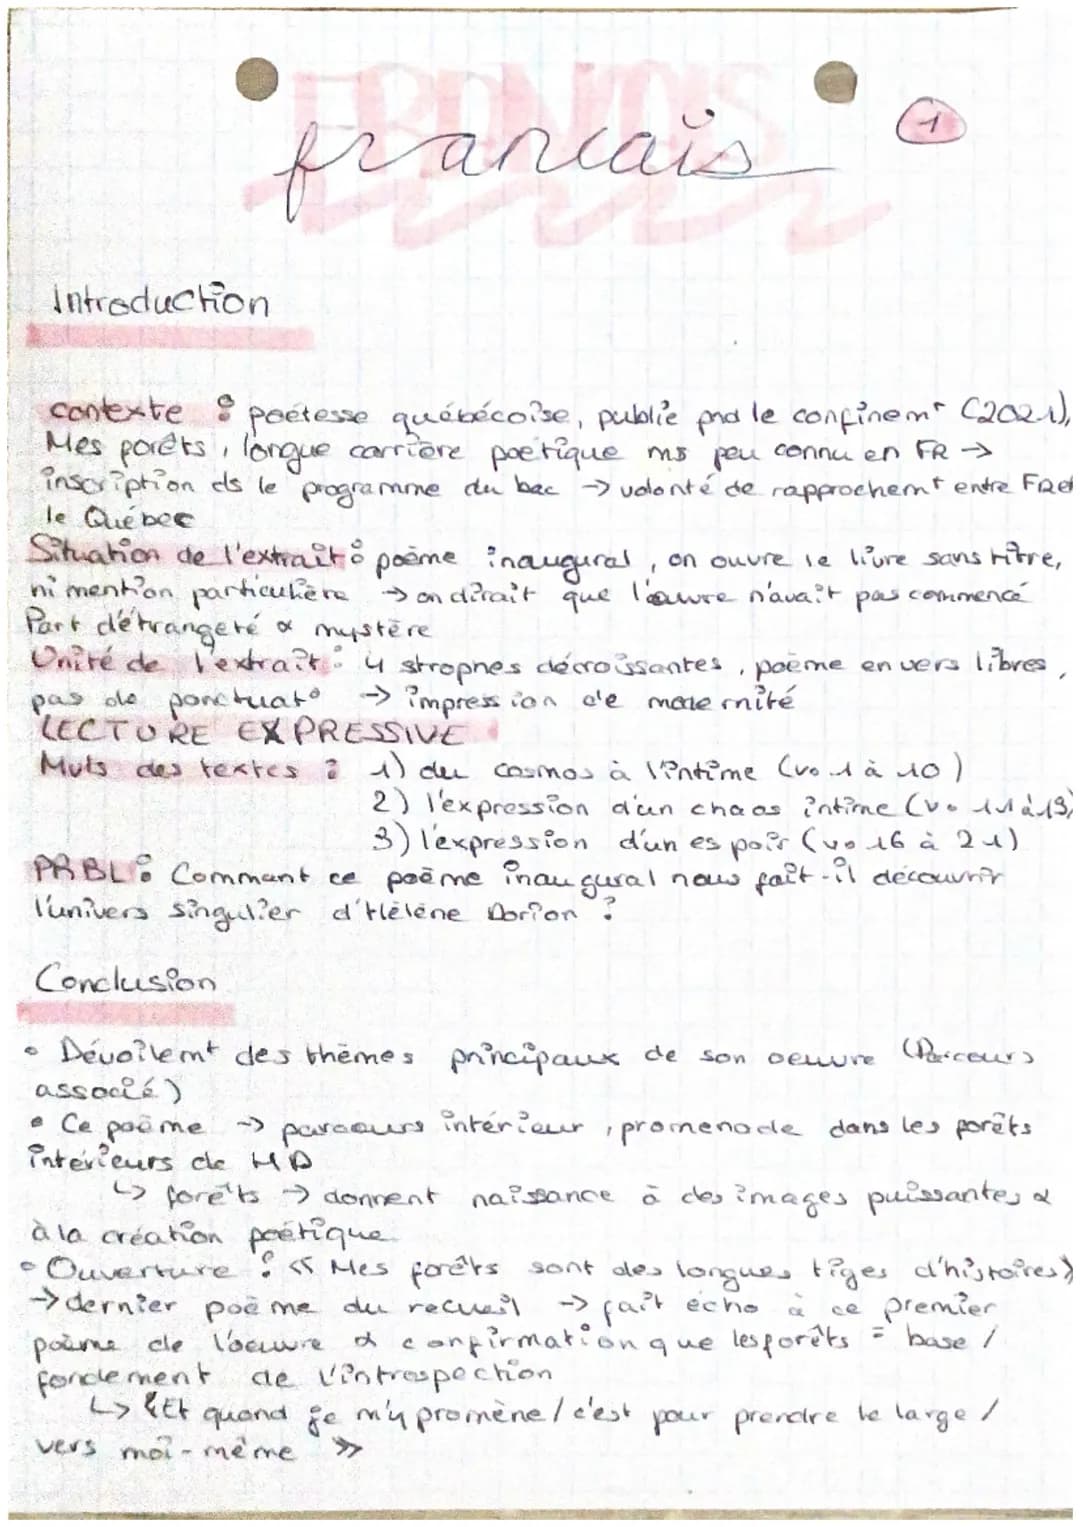 FRANÇAIS
francais
1
Introduction
contexte : poétesse québécoise, publié pnd le confinemt (2021),
Mes forêts, longue carrière poétique ms peu connu en FR →
inscription ds le programme du bac → volonté de rapprochemt entre FR et
le Québec
Situation de l'extrait : poème inaugural, on ouvre le livre sans titre,
ni mention particulière → on dirait que l'œuvre n'avait pas commencé
Part d'étrangeté & mystère
Unité de l'extrait : 4 strophes décroissantes, poème en vers libres,
pas de ponctuato → impression de modernité
LECTURE EXPRESSIVE
Mvts des textes : 1) du cosmos à l'intime (v. 1 à 10)
2) l'expression d'un chaos intime (v. 11 à 15)
3) l'expression d'un espoir (v. 16 à 21)
PRBL : Comment ce poème inaugural nous fait-il découvrir
l'univers singulier d'Hélène Dorion ?
Conclusion
• Dévoilemt des thèmes principaux de son oeuvre (Parcours
associé)
• Ce poème → parcours intérieur, promenade dans les forêts
intérieurs de HD
↳ forêts → donnent naissance à des images puissantes &
à la création poétique
• Ouverture : « Mes forêts sont des longues tiges d'histoires »
→ dernier poème du recueil → fait écho à ce premier
poème de l'oeuvre & confirmation que les forêts = base /
fondement de l'introspection
↳ « Et quand je m'y promène / c'est pour prendre le large /
vers moi-même »